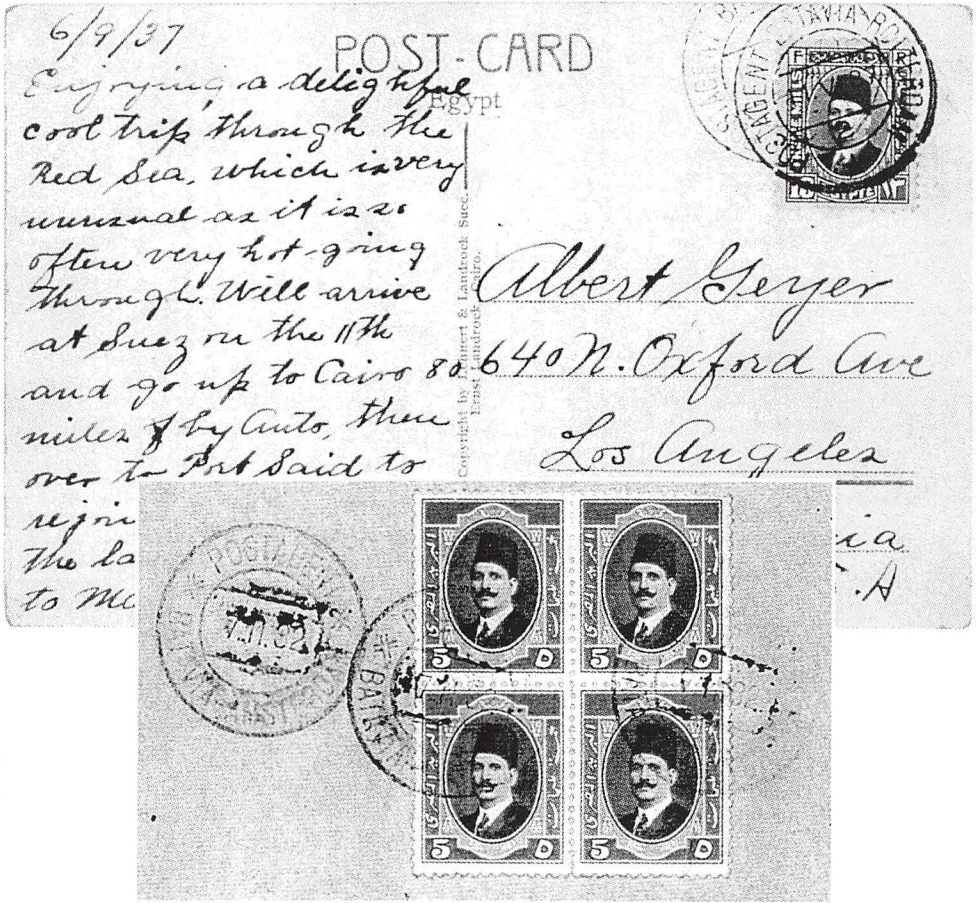 6/9/37
POST-CARD
Egypt
Enjoying a delightful
cool trip through the
Red Sea, which is very
unusual as it is so
often very hot going
through. Will arrive
at Suez on the 11th
and go up to Cairo 80
miles by Auto, then
over to Port Said to
rejoin
the la
to Me
Copyright by Lehnert & Landrock Succ.
Ernst Landrock Cairo.
POSTAGENT BATAVIA-ROTTERDAM
Albert Geyer
640 N. Oxford Ave
Los Angeles
ia
.A
POSTAGENT
BATAVIA-AMSTERDAM
7.11.32
BATAVIA
5 ٥
5 ٥
5 ٥
5 ٥